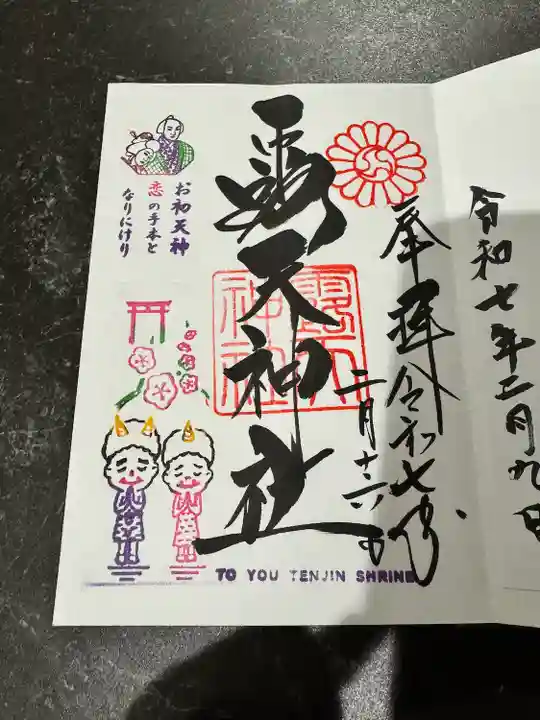 令和七年二月九日
奉拝
令和七年
二月十六日
露天神社
露天
神社
お初天神
恋の手本と
なりにけり
TO YOU TENJIN SHRINE